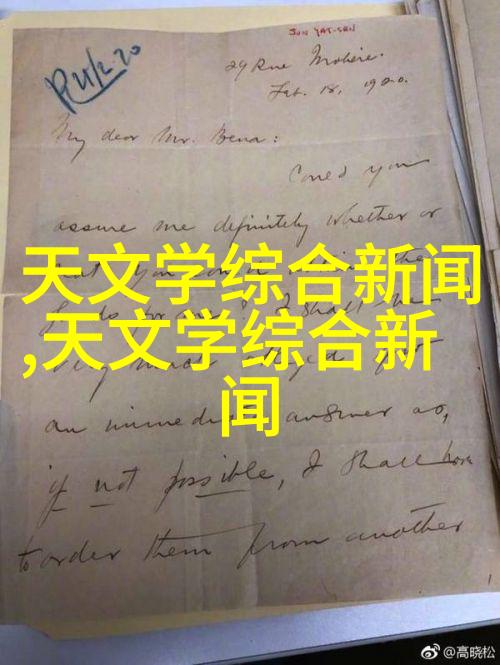 SUN YAT-SEN
R 21/2·20
29 Rue Molière.
Feb. 18, 1920.
My dear Mr. Bena:
Could you
assure me definitely whether or
天文学综合新闻
,天文学综合新
闻
an immediate answer as,
if not possible, I shall have
to order them from another
@高晓松